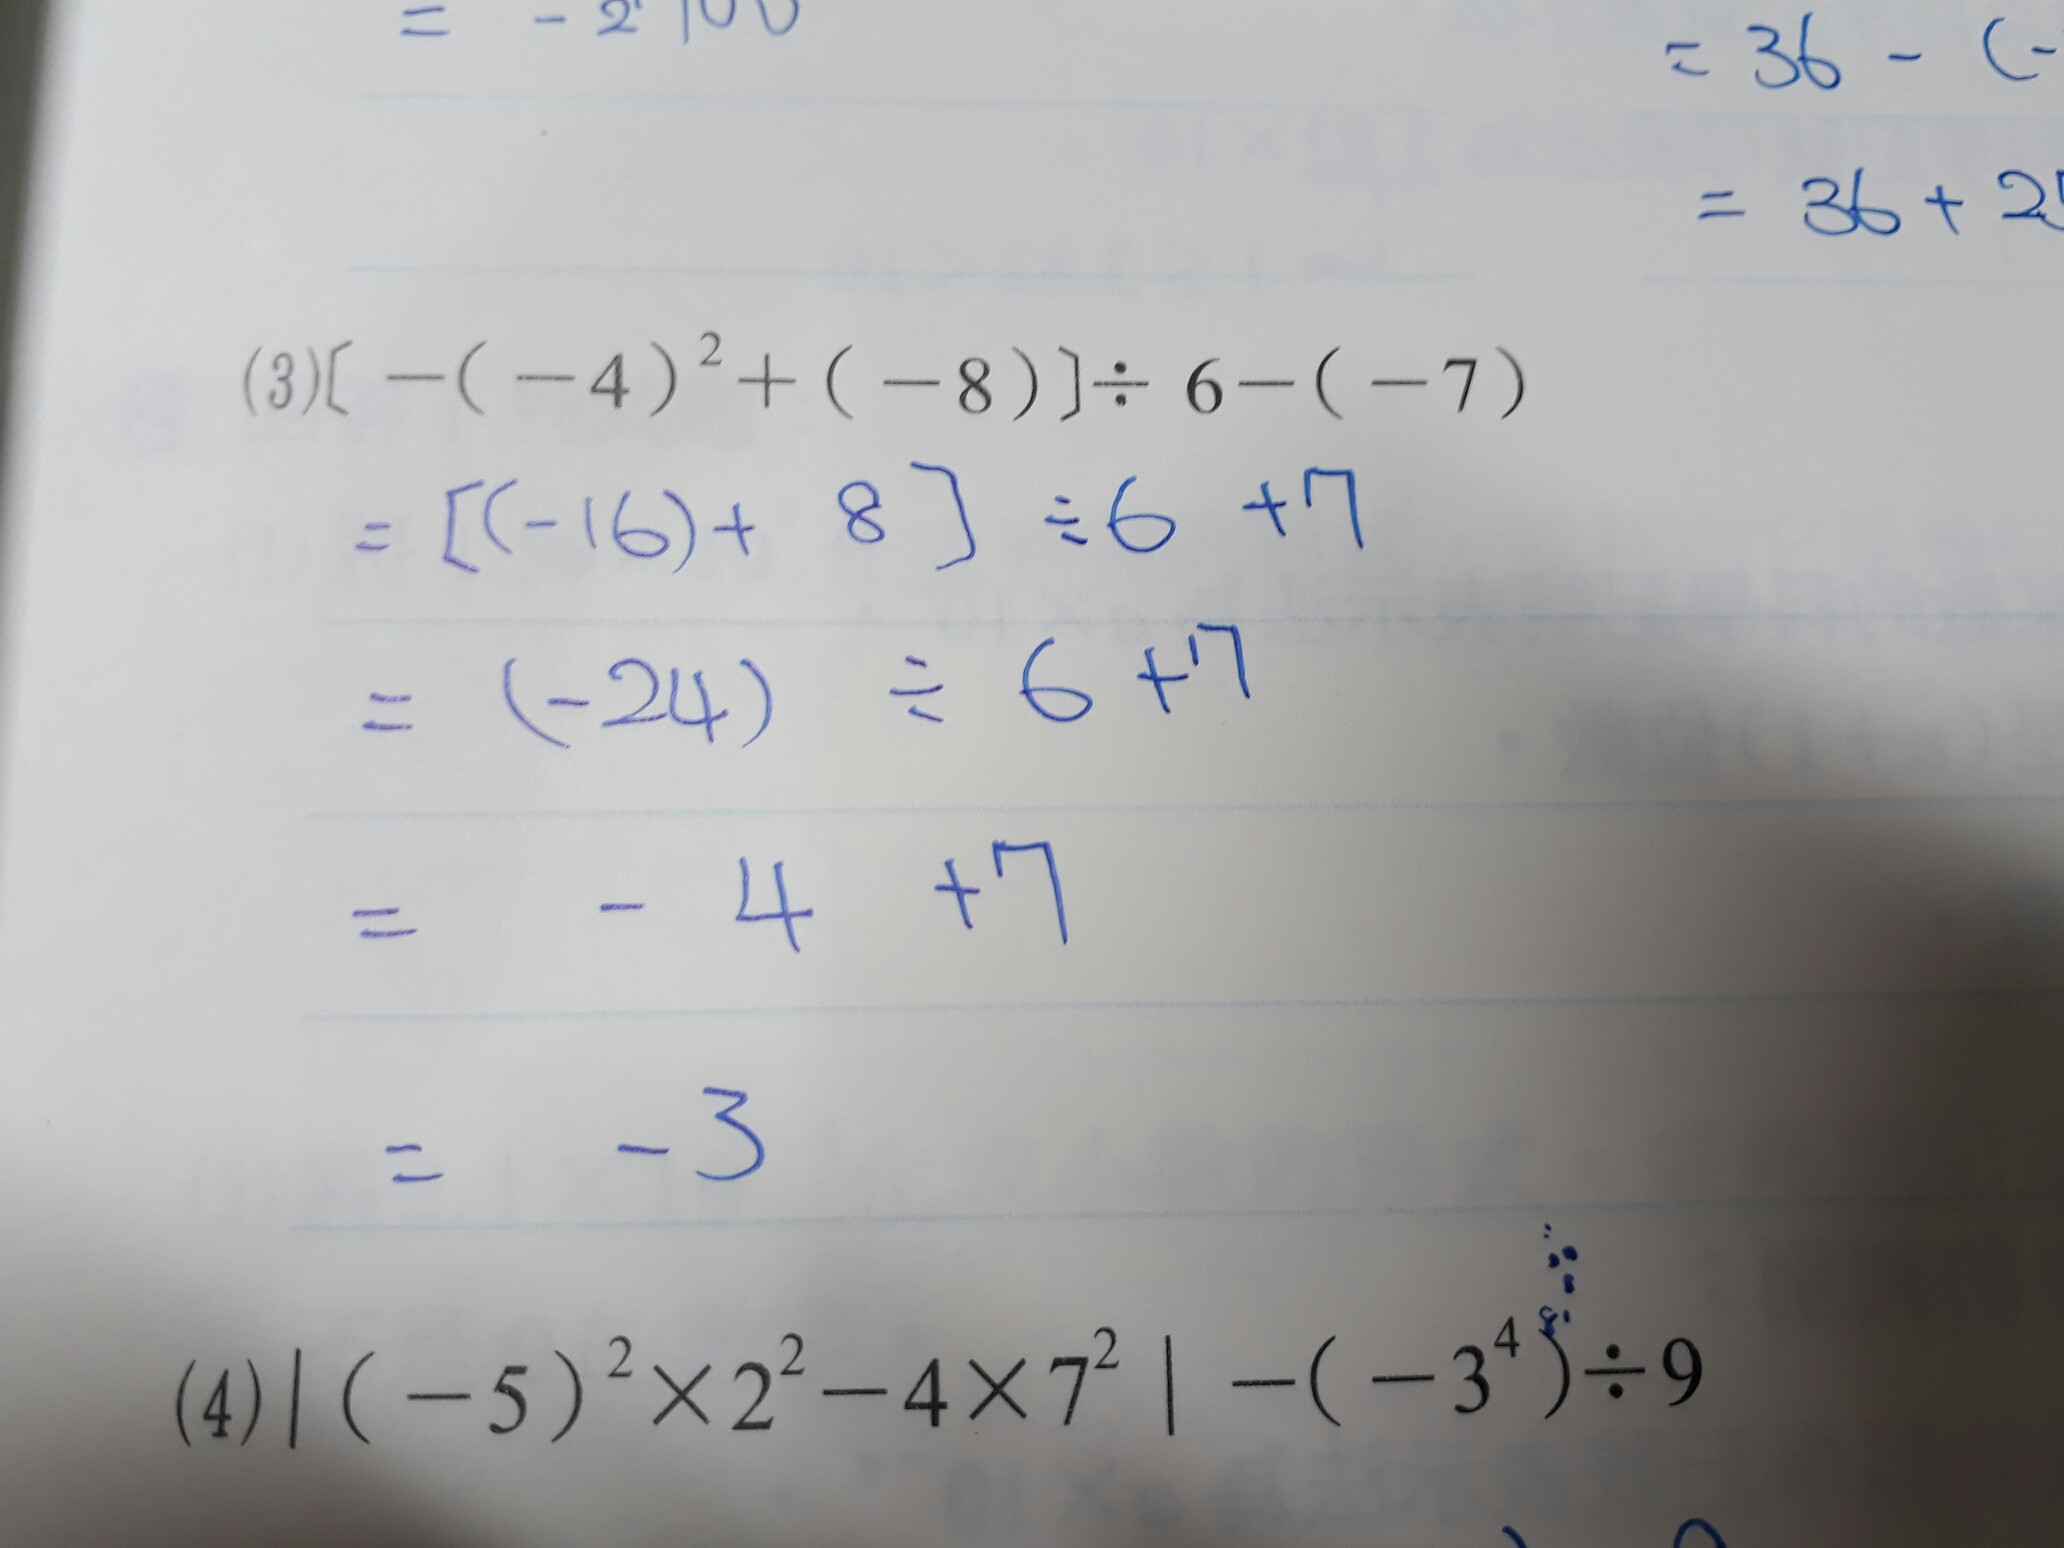 = -2100
= 36 - (-
= 36 + 25
(3)[-(-4)²+(-8)]÷6-(-7)
= [(-16)+ 8] ÷6 +7
= (-24) ÷ 6 +7
= - 4 +7
= -3
(4)|(-5)²×2²-4×7²|-(-3⁴)÷9